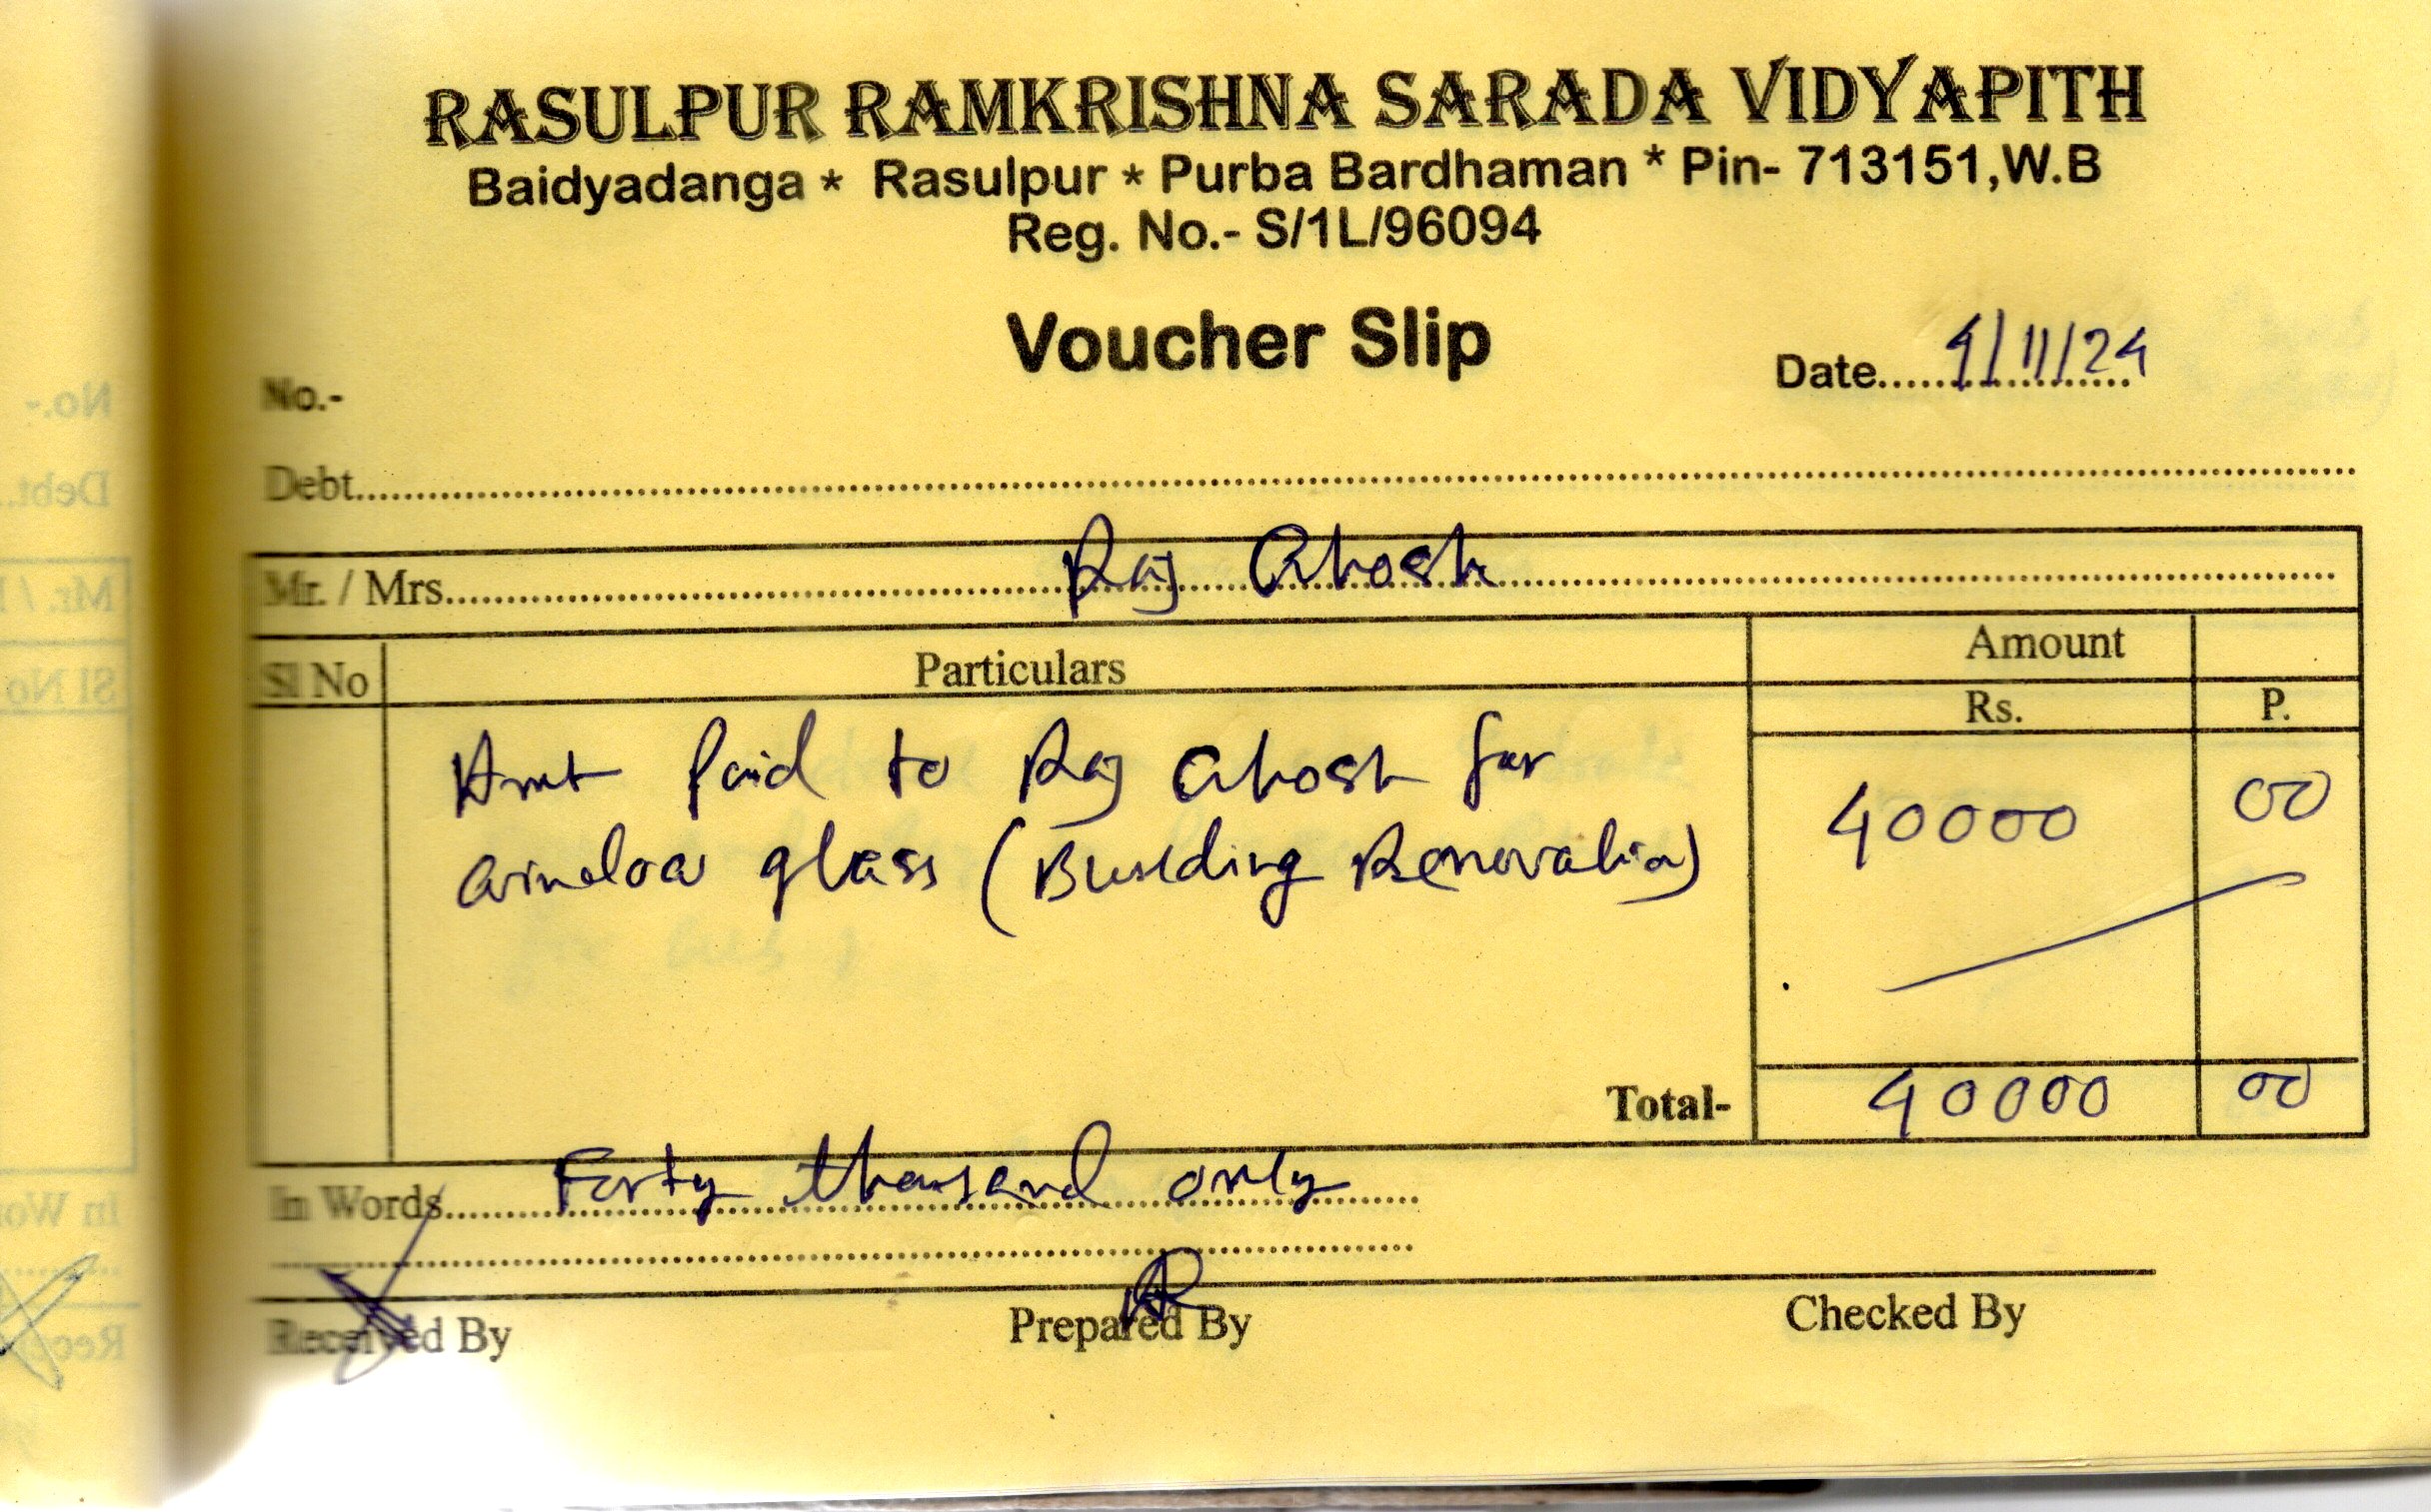 RASULPUR RAMKRISHNA SARADA VIDYAPITH
Baidyadanga * Rasulpur * Purba Bardhaman * Pin- 713151,W.B
Reg. No.- S/1L/96094
Voucher Slip
No.-
Date..... 4/11/24
Debt
Mr. / Mrs. Raj Ghosh
Sl No Particulars Amount
Rs. P.
Amt Paid to Raj Ghosh for 40000 00
window glass (Building Renovation)
Total- 40000 00
In Words Forty thousand only
Received By Prepared By Checked By